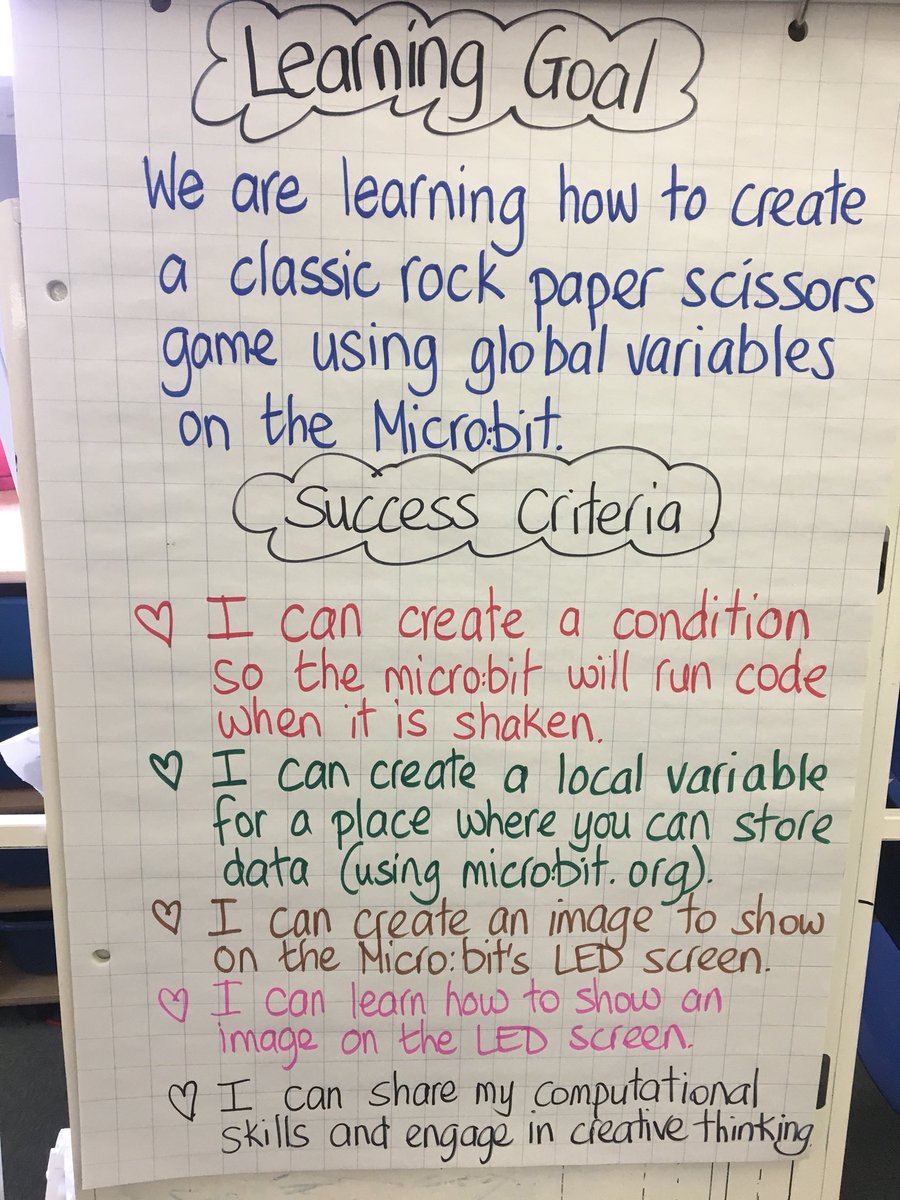 Learning Goal
We are learning how to create
a classic rock paper scissors
game using global variables
on the Micro:bit.
Success Criteria
I can create a condition
so the micro:bit will run code
when it is shaken.
I can create a local variable
for a place where you can store
data (using micro:bit.org).
I can create an image to show
on the Micro:bit's LED screen.
I can learn how to show an
image on the LED screen.
I can share my computational
skills and engage in creative thinking